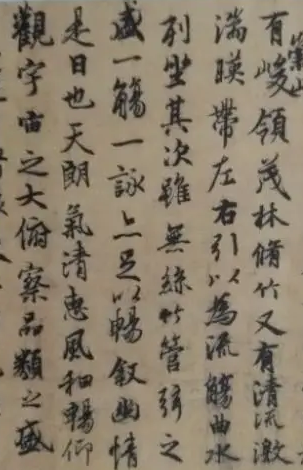 崇山
有峻領茂林脩竹又有清流激
湍暎帶左右引以為流觴曲水
列坐其次雖無絲竹管弦之
盛一觴一詠亦足以暢敘幽情
是日也天朗氣清惠風和暢仰
觀宇宙之大俯察品類之盛